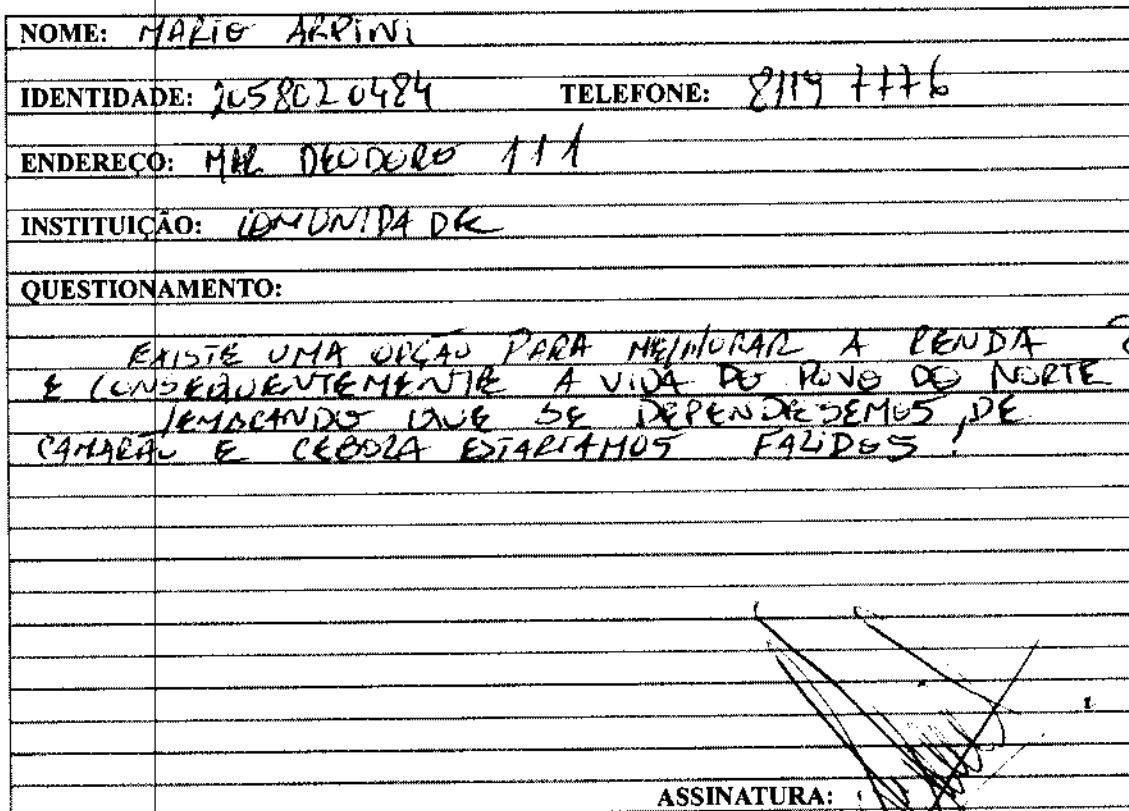 NOME: MARIO ARPINI
IDENTIDADE: 2058020484 TELEFONE: 8119 7776
ENDEREÇO: MAL DEODORO 111
INSTITUIÇÃO: COMUNIDADE
QUESTIONAMENTO:
EXISTE UMA OPÇÃO PARA MELHORAR A RENDA
E CONSEQUENTEMENTE A VIDA DO POVO DO NORTE ?
LEMBRANDO QUE SE DEPENDESEMOS, DE
CAMARÃO E CEBOLA ESTARIAMOS FALIDOS !
ASSINATURA: